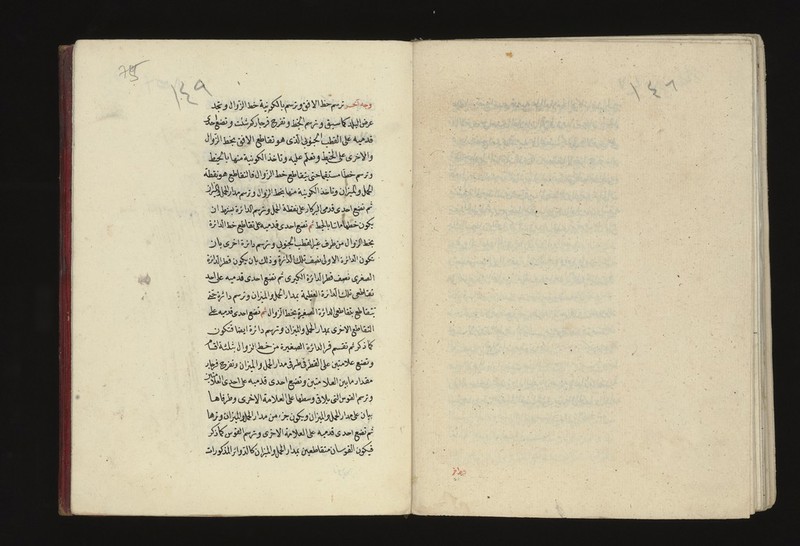 ١٤٩
وجه آخر ترسم خط الافق وترسم بالكونية خط الزوال وتجد
عرض البلد كما سبق وترسم الخط وتفرج فرجار كم شئت وتضع احد
قدميه على القطب الجنوبي الذى هو تقاطع الافق بخط الزوال
والاخرى على الخيط وتعلم عليه وتاخذ الكونية منها بالخيط
وترسم خطا مستقيما حتى يتقاطع خط الزوال فالتقاطع هو نقطة
الحمل والميزان وتاخذ الكونية منها بخط الزوال وترسم مدار الحمل والميزان
ثم تضع احدى قدمى البركار على نقطة الحمل وترسم الدائرة بشرط ان
يكون خطها مماسا بالخيط ثم تضع احدى قدميه على تقاطع خط الدائرة
بخط الزوال من طرف القطب الجنوبي وترسم دائرة اخرى بان
تكون الدائرة الاولى نصف تلك الدائرة وذلك بان يكون قطر الدائرة
الصغرى نصف قطر الدائرة الكبرى ثم تضع احدى قدميه على احد
تقاطعى تلك الدائرة العظيمة بمدار الحمل والميزان وترسم دائرة حتى
يتقاطع بتقاطع الدائرة الصغيرة بخط الزوال ثم تضع احدى قدميه على
التقاطع الاخرى بمدار الحمل والميزان وترسم دائرة ايضا فتكون
كما ذكر ثم تقسم قطر الدائرة الصغيرة من خط الزوال بثلثة اقسام
وتضع علامتين على القطر فى طرفى مدار الحمل والميزان وتفرج فرجار
مقدار ما بين العلامتين وتضع احدى قدميه على احدى العلامتين
وترسم القوس التى يلاقى وسطها على العلامة الاخرى وطرفاها
بان على مدار الحمل والميزان ويكون جزء من مدار الحمل والميزان وترها
ثم تضع احدى قدميه على العلامة الاخرى وترسم القوس كما ذكر
فيكون القوسان متقاطعين بمدار الحمل والميزان كالدوائر المذكورات